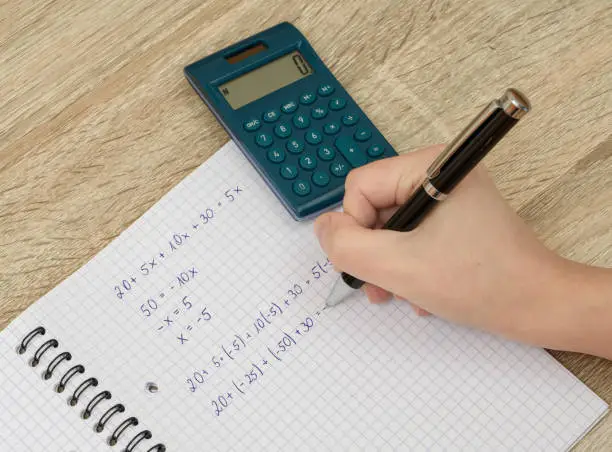 0
20 + 5x + 10x + 30 = 5x
50 = -10x
-x = 5
x = -5
20 + 5·(-5) + 10(-5) + 30 = 5(-5
20 + (-25) + (-50) + 30 = -
7 8 9 %
4 5 6 ×
1 2 3 +
0 . +/-